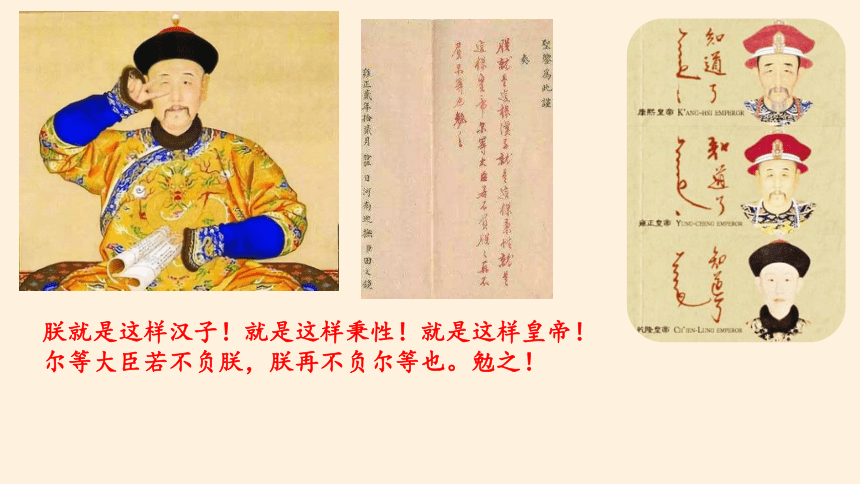 聖鑒為此謹
奏
朕就是這樣漢子就是這樣秉性就是
這樣皇帝爾等大臣若不負朕朕再不
負爾等也勉之
雍正貳年拾貳月 日河南巡撫臣田文鏡
知道了
康熙皇帝 K'ANG-HSI EMPEROR
知道了
雍正皇帝 YUNG-CHENG EMPEROR
知道了
乾隆皇帝 CH'IEN-LUNG EMPEROR
朕就是这样汉子！就是这样秉性！就是这样皇帝！
尔等大臣若不负朕，朕再不负尔等也。勉之！